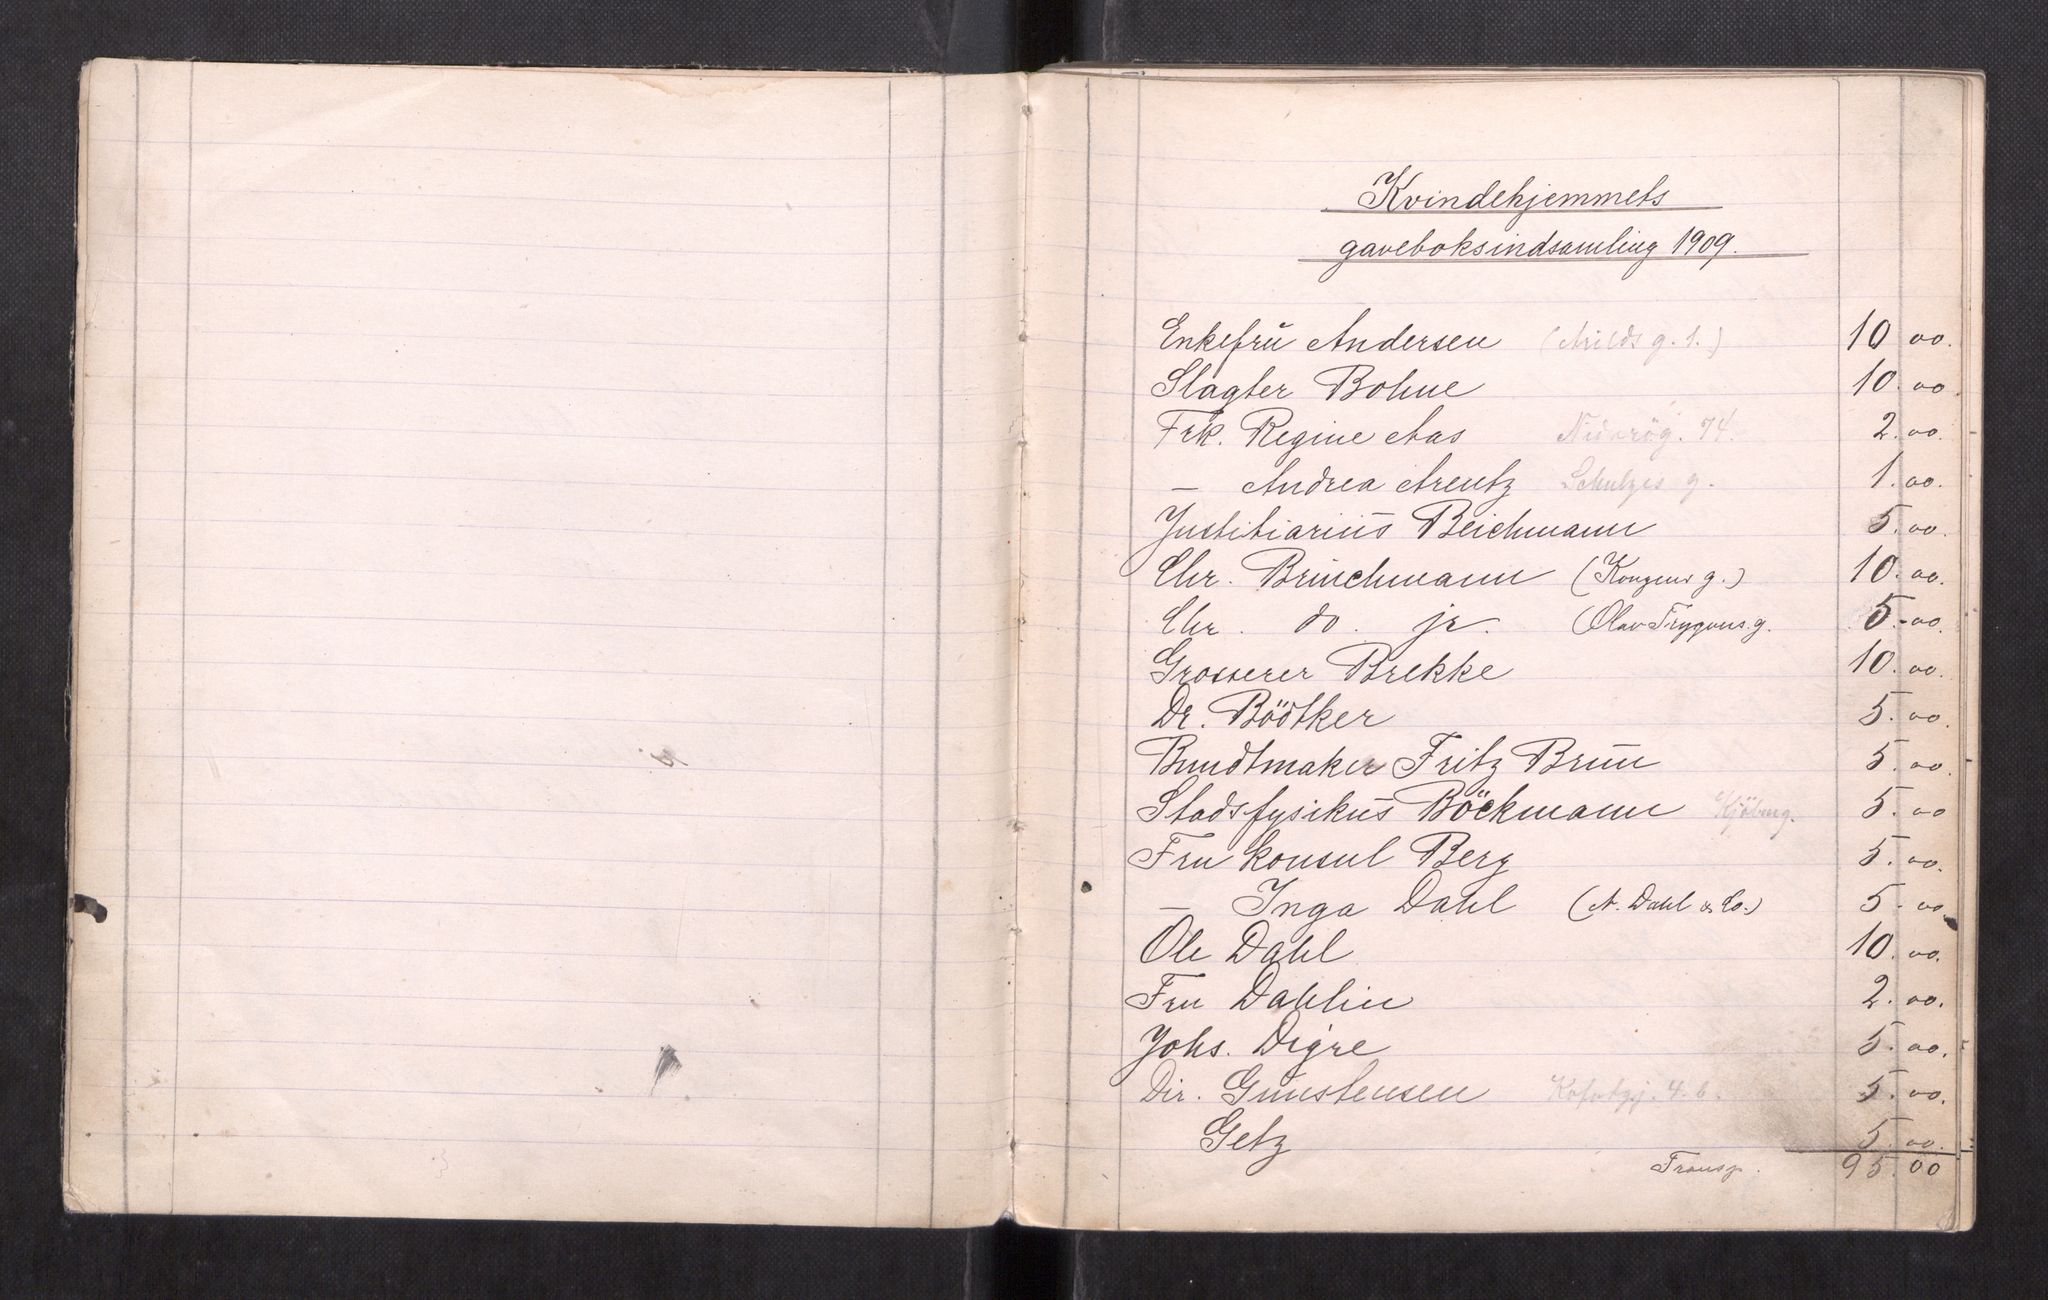 Kvindehjemmets
gaveboksindsamling 1909.
Enkefru Andersen (Arilds g. 1.) 10 00.
Slagter Bohne 10. 00
Frk. Regine Aas Nidaróg. 74. 2. 00.
— Andrea Arentz Schulzes g. 1. 00.
Justitiarius Beichmann 5. 00.
Chr. Brinchmann (Kongens g.) 10. 00.
Chr. do. jr. (Olav Trygvas. g. 5. 00.
Grosserer Brekke 10. 00.
Dr. Bödtker 5. 00.
Bundtmaker Fritz Brun 5. 00.
Stadsfysikus Böckmann 5. 00
Fru konsul Berg 5. 00.
— Inga Dahl (A. Dahl & Co.) 5. 00.
Ole Dahl 10. 00.
Fru Dahlin 2. 00.
Johs. Digre 5. 00.
Dir. Gunstensen 4. b. 5. 00.
Getz 5. 00.
Transp. 95. 00